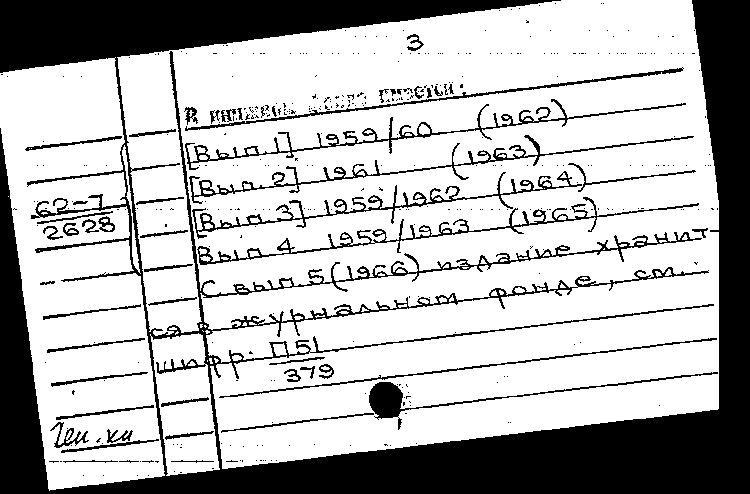 3
В книжном фонде имеется:
[Вып. 1] 1959/60 (1962)
[Вып. 2] 1961 (1963)
62-7
2628
[Вып. 3] 1959/1962 (1964)
Вып. 4 1959/1963 (1965)
С вып. 5 (1966) издание хранит-
ся в журнальном фонде, см.
шифр: П51
379
Ген. кн